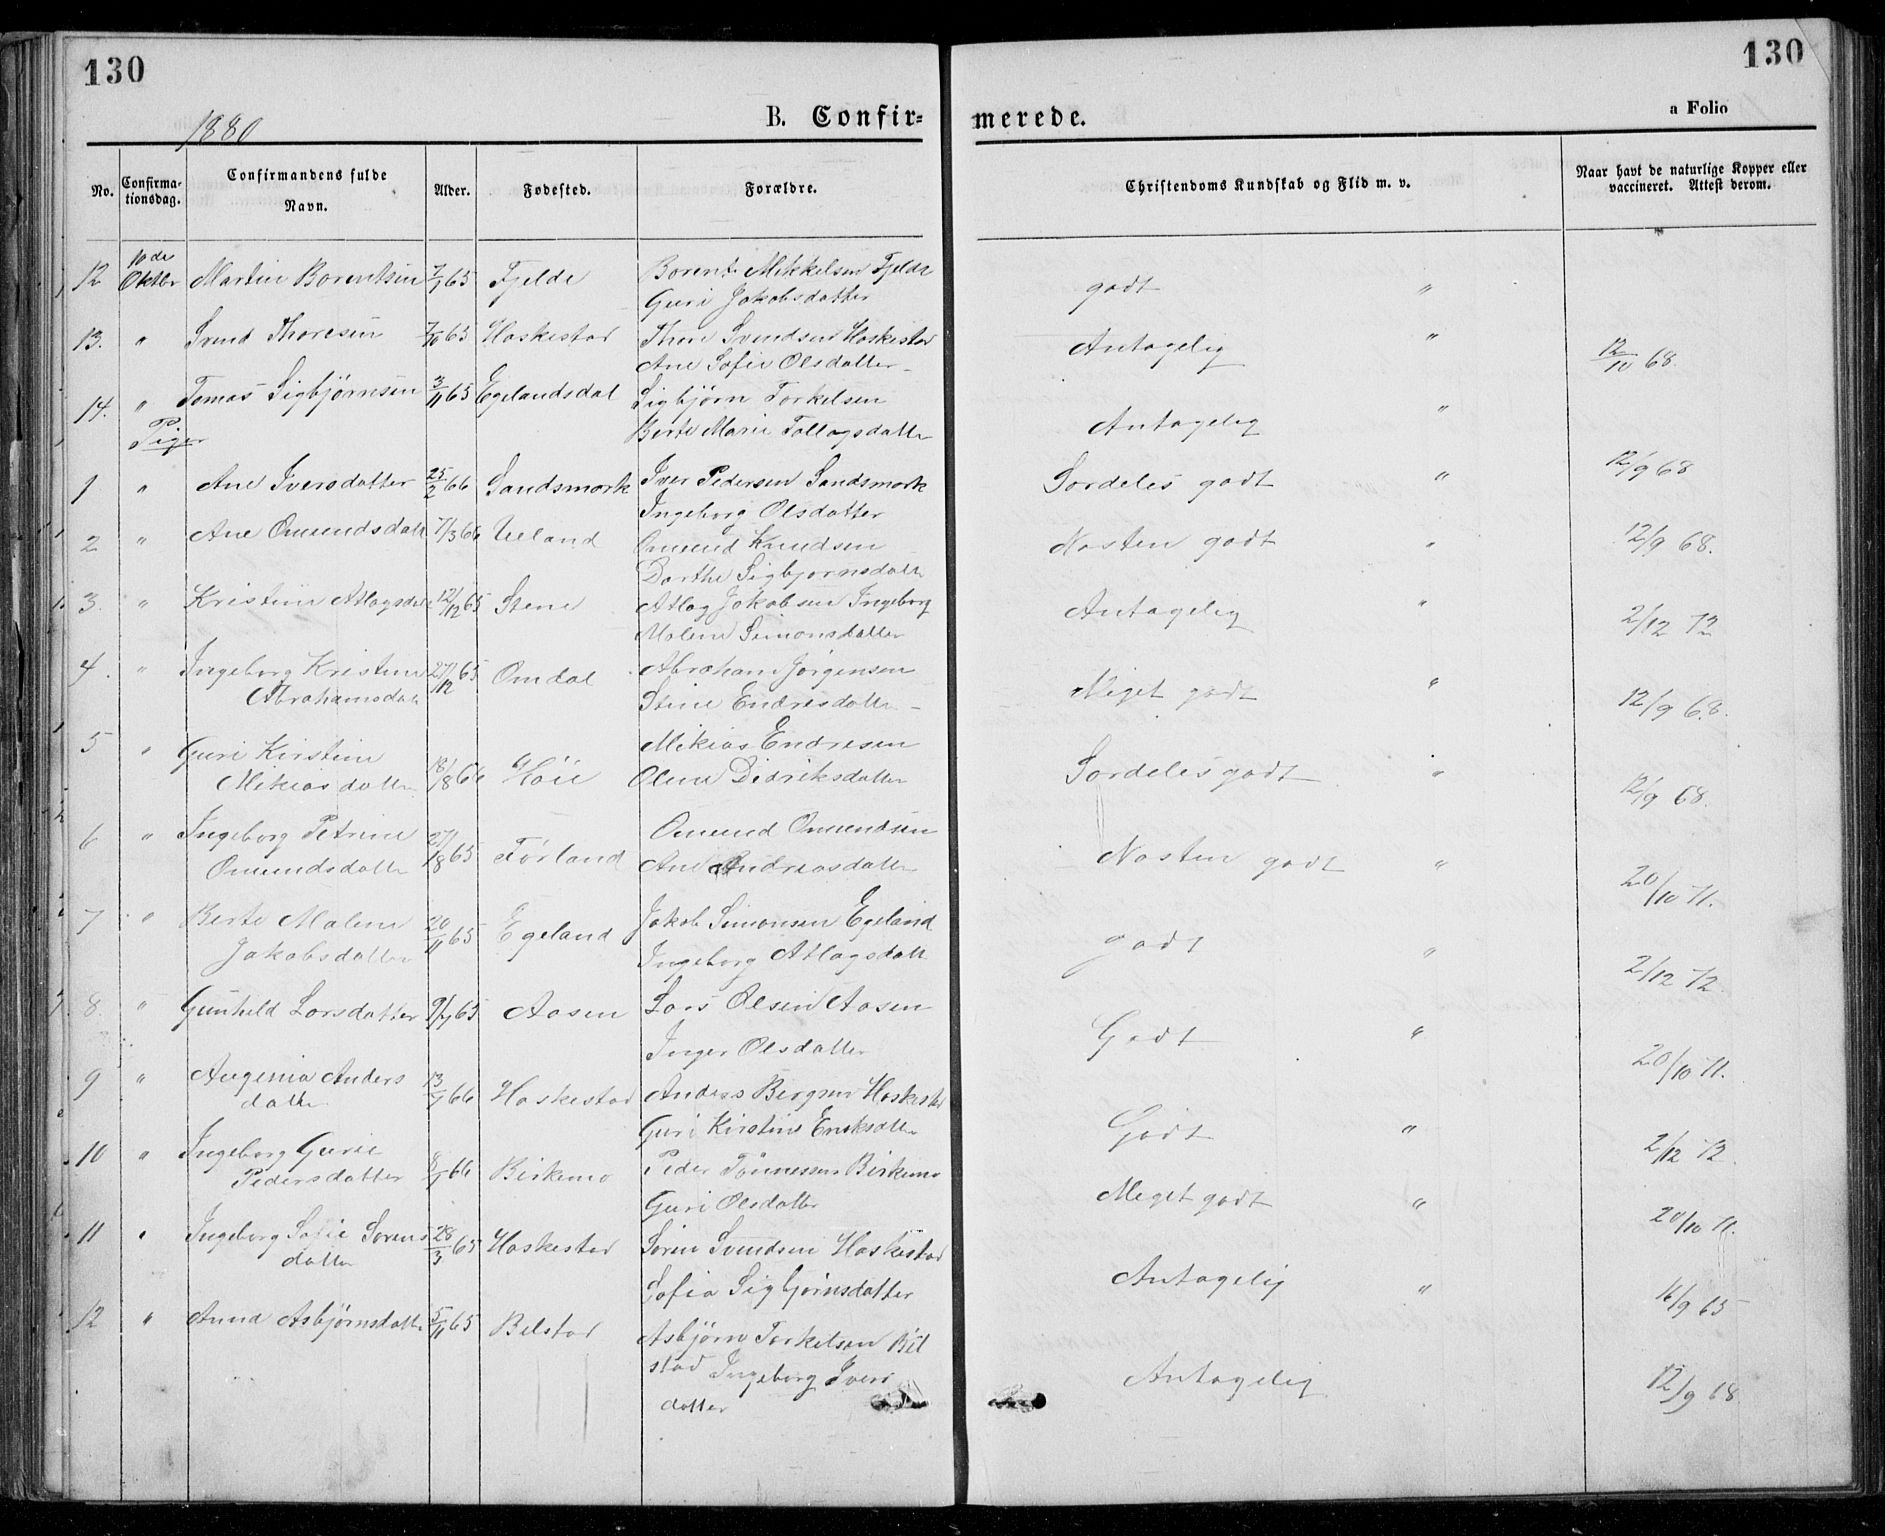 130
130
1880
B. Confir=
merede.
a Folio
No.
Confirma-
tionsdag.
Confirmandens fulde
Navn.
Alder.
Fødested.
Forældre.
Christendoms Kundskab og Flid m. v.
Naar havt de naturlige Kopper eller
vaccineret. Attest derom.
10de
12 Oktbr Martin Borentsen 65 Fjelde Borent Mikkelsen Fjelde
Guri Jakobsdatter godt "
13. " Svend Thoresen 7/10 65 Haskestad Thore Svendsen Haskestad
Ane Sofie Olsdatter Antagelig " 12/10 68.
14. " Tomas Sigbjørnsen 3/11 65 Egelandsdal Sigbjørn Torkelsen
Berte Marie Tollagsdatter Antagelig "
Piger
1 " Ane Iversdatter 25/2 66 Sandsmork Iver Pedersen Sandsmork
Ingeborg Olsdatter Særdeles godt " 12/9 68
2 " Ane Omundsdatt 7/3 66 Ueland Omund Knudsen
Dorthe Sigbjørnsdatt Næsten godt " 12/9 68.
3. " Kristine Atlagsdat 12/12 65 Stene Atlag Jakobsen Ingeborg
Malene Simonsdatter Antagelig " 2/12 72
4. " Ingeborg Kristine
Abrahamsdatt 27/12 65 Omdal Abraham Jørgensen
Stine Endresdatter Meget godt " 12/9 68.
5 " Guri Kirstine
Mikiasdatter 18/8 66 Høie Mikias Endresen
Olene Didriksdatter Særdeles godt " 12/9 68.
6 " Ingeborg Petrine
Omundsdatter 65 Førland Omund Omundsen
Ane Andreasdatter Næsten godt " 20/10 71.
7 " Berte Malene
Jakobsdatter 20/11 65 Egeland Jakob Simonsen Egeland
Ingeborg Atlagsdatt godt " 2/12 72
8. " Gunhild Larsdatter 65 Aasen Lars Olsen Aasen
Inger Olsdatter Godt " 20/10 71.
9 " Augenia Anders
datter 66 Haskestad Anders Bergsen Haskestad
Guri Kirstine Eriksdatter Godt " 2/12 72
10 " Ingeborg Gurie
Pedersdatter 66 Birkemo Peder Tønnessen Birkemo
Guri Olsdatter Meget godt " 20/10 71.
11 " Ingeborg Sofie Sørens
datter 28/3 65 Haskestad Søren Svendsen Haskestad
Sofia Sigbjørnsdatter Antagelig " 16/9 65
12 " Anna Asbjørnsdatter 5/11 65 Belstad Asbjørn Torkelsen Bil
stad Ingeborg Ivers
datter Antagelig 12/9 68